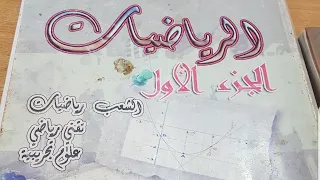 الرياضيات
الجزء الأول
الشعب رياضيات
تقني رياضي
علوم تجريبية